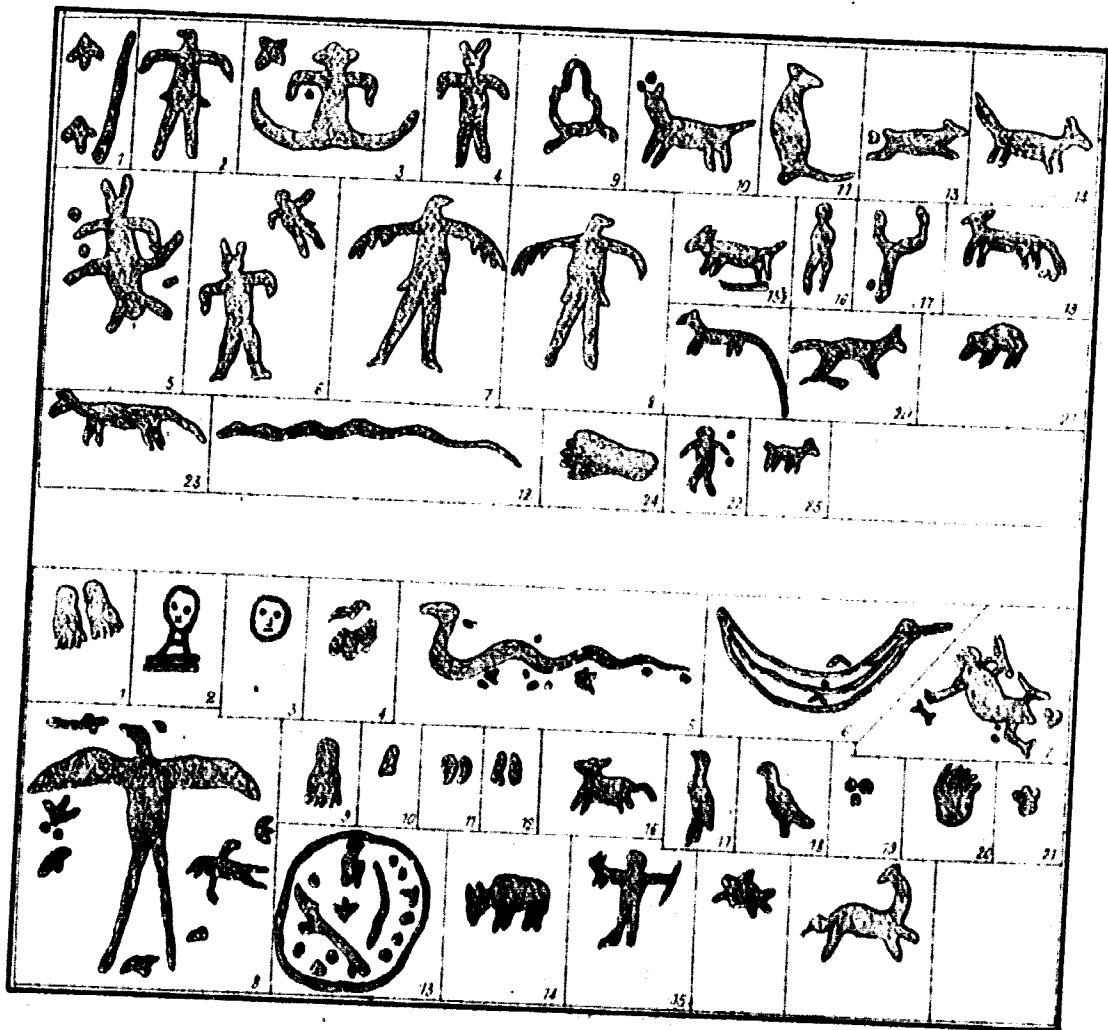 1 2 3 4 9 10 11 13 14
5 6 7 8 15 16 17 18
20 21
23 12 24 22 25
1 2 3 4 5 6 7
8 9 10 11 12 16 17 18 19 20 21
13 14 15